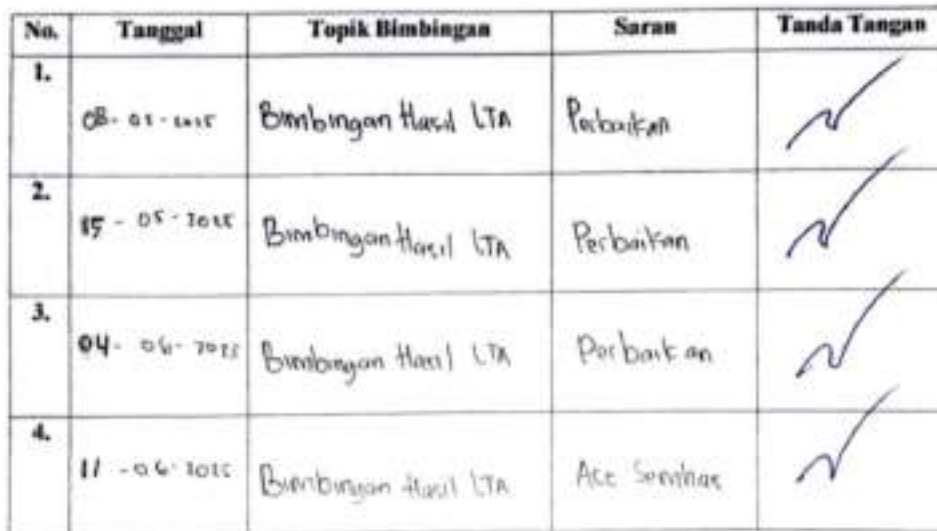 No. Tanggal Topik Bimbingan Saran Tanda Tangan
1. 08-05-2025 Bimbingan Hasil LTA Perbaikan
2. 15-05-2025 Bimbingan Hasil LTA Perbaikan
3. 04-06-2025 Bimbingan Hasil LTA Perbaikan
4. 11-06-2025 Bimbingan Hasil LTA Acc Semhas